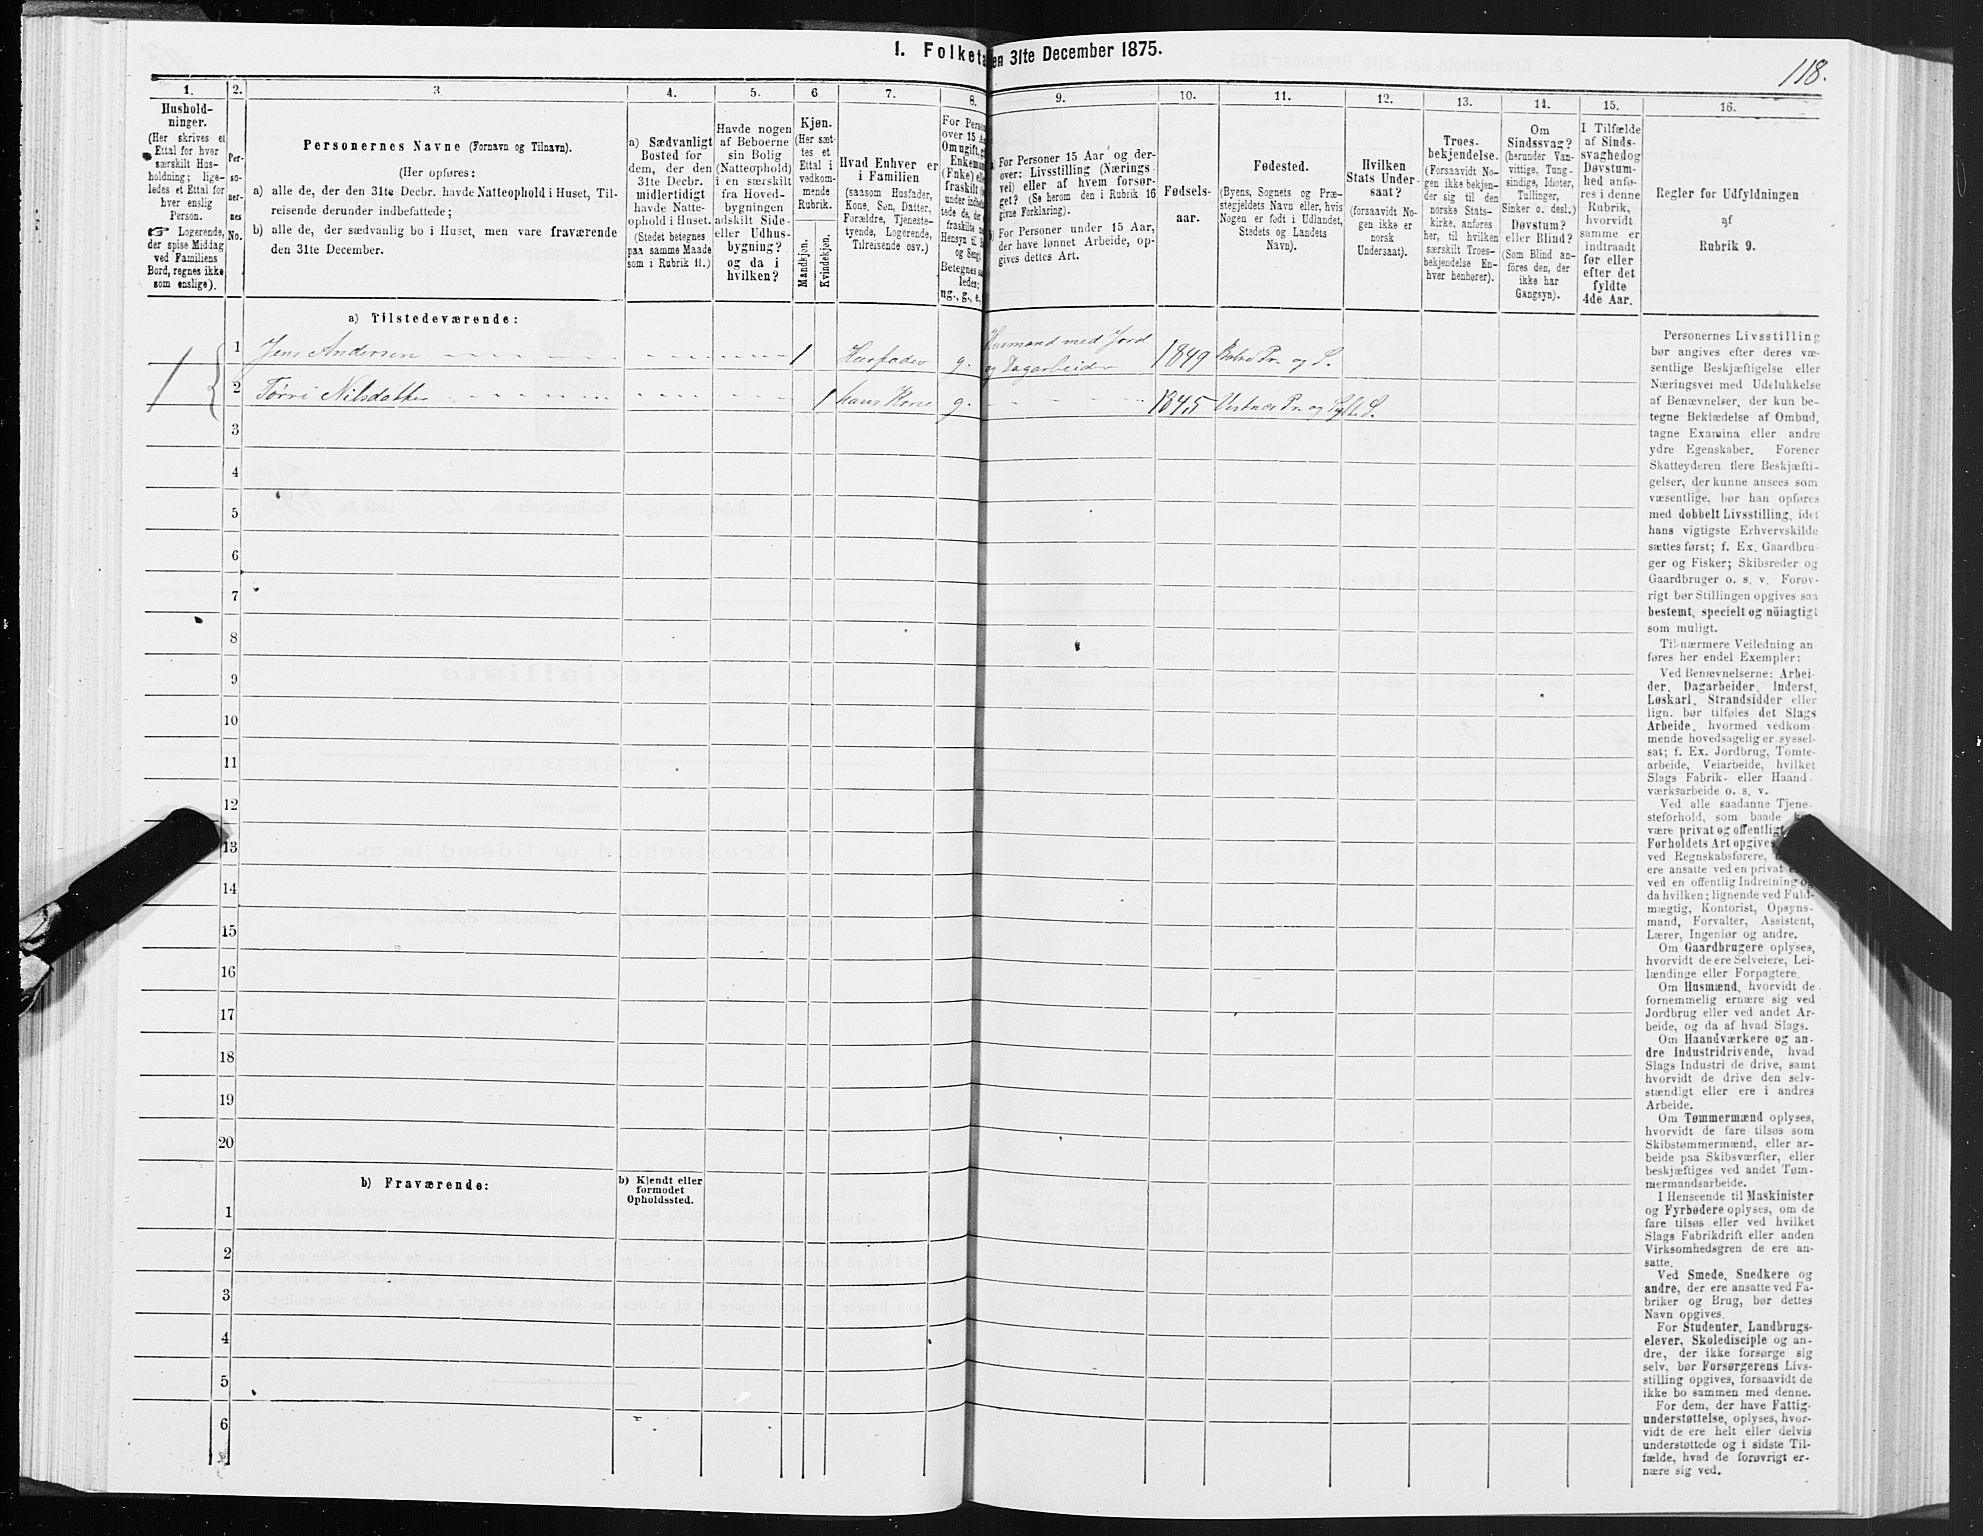 1. Folketa
en 31te December 1875.
118.
1.
2.
3
4.
5.
6
7.
8.
9.
10.
11.
12.
13.
14.
15.
16.
Hushold-
ninger.
(Her skrives et
Ettal for hver
særskilt Hus-
holdning; lige-
ledes et Ettal for
hver enslig
Person.
☞ Logerende,
der spise Middag
ved Familiens
Bord, regnes ikke
som enslige).
Per-
so-
ner-
nes
No.
Personernes Navne (Fornavn og Tilnavn).
(Her opføres:
a) alle de, der den 31te Decbr. havde Natteophold i Huset, Til-
reisende derunder indbefattede;
b) alle de, der sædvanlig bo i Huset, men vare fraværende
den 31te December.
a) Sædvanligt
Bosted for
dem, der den
31te Decbr.
midlertidigt
havde Natte-
ophold i Huset.
(Stedet betegnes
paa samme Maade
som i Rubrik 11.)
Havde nogen
af Beboerne
sin Bolig
(Natteophold)
i en særskilt
fra Hoved-
bygningen
adskilt Side-
eller Udhus-
bygning?
og da i
hvilken?
Kjøn.
(Her sæt-
tes et
Ettal i
vedkom-
mende
Rubrik.
Mandkjøn.
Kvindekjøn.
Hvad Enhver er
i Familien
(saasom Husfader,
Kone, Søn, Datter,
Forældre, Tjeneste-
tyende, Logerende,
Tilreisende osv.)
For Perso
over 15 Aa
Om ugift, g
Enkeman
(Enke) ell
fraskilt (
under indbefa
tede de, der
fraskilte
Hensyn til B
og Seng).
Betegnes sa
ledes:
ug., g., e.,
a) For Personer 15 Aar og der-
over: Livsstilling (Nærings
vei) eller af hvem forsør-
get? (Se herom den i Rubrik 16
givne Forklaring).
b) For Personer under 15 Aar,
der have lønnet Arbeide, op-
gives dettes Art.
Fødsels-
aar.
Fødested.
(Byens, Sognets og Præ-
stegjeldets Navn eller, hvis
Nogen er født i Udlandet,
Stedets og Landets
Navn).
Hvilken
Stats Under-
saat?
(forsaavidt No-
gen ikke er
norsk
Undersaat).
Troes-
bekjendelse.
(Forsaavidt No-
gen ikke bekjen-
der sig til den
norske Stats-
kirke, anføres
her, til hvilken
særskilt Troes-
bekjendelse En-
hver henhører).
Om
Sindssvag?
(herunder Van-
vittige, Tung-
sindige, Idioter,
Tullinger,
Sinker o. desl.)
Døvstum?
eller Blind?
(Som Blind an-
føres den, der
ikke har
Gangsyn).
I Tilfælde
af Sinds-
svaghedog
Døvstum-
hed anfø-
res i denne
Rubrik,
hvorvidt
samme er
indtraadt
før eller
efter det
fyldte
4de Aar.
Regler for Udfyldningen
af
Rubrik 9.
a) Tilstedeværende:
1 Jens Andersen 1 Husfader g. Husmand med Jord
og Dagarbeider 1849 Bolsø Pr. og S.
1
2 Tørri Nilsdatter 1 hans Kone g. 1845 Vestnæs Pr. og Sylte S.
3
4
5
6
7
8
9
10
11
12
13
14
15
16
17
18
19
20
b) Fraværende:
b) Kjendt eller
formodet
Opholdssted.
1
2
3
4
5
6
Personernes Livsstilling
bør angives efter deres væ-
sentlige Beskjæftigelse eller
Næringsvei med Udelukkelse
af Benævnelser, der kun be-
tegne Beklædelse af Ombud,
tagne Examina eller andre
ydre Egenskaber. Forener
Skatteyderen flere Beskjæfti-
gelser, der kunne ansees som
væsentlige, bør han opføres
med dobbelt Livsstilling, idet
hans vigtigste Erhvervskilde
sættes først; f. Ex. Gaardbru-
ger og Fisker; Skibsreder og
Gaardbruger o. s. v. Forøv-
rigt bør Stillingen opgives saa
bestemt, specielt og nöiagtigt
som muligt.
Til nærmere Veiledning an
føres her endel Exempler:
Ved Benævnelserne: Arbei-
der, Dagarbeider, Inderst,
Løskarl, Strandsidder eller
lign. bør tilføies det Slags
Arbeide, hvormed vedkom-
mende hovedsagelig er syssel-
sat; f. Ex. Jordbrug, Tomte-
arbeide, Veiarbeide, hvilket
Slags Fabrik- eller Haand-
værksarbeide o. s. v.
Ved alle saadanne Tjene-
steforhold, som baade
være privat og offentlig
Forholdets Art opgives
ved Regnskabsførere,
ere ansatte ved en privat
ved en offentlig Indretning og
da hvilken; lignende ved Fuld-
mægtig, Kontorist, Opsyns-
mand, Forvalter, Assistent,
Lærer, Ingeniør og andre.
Om Gaardbrugere oplyses,
hvorvidt de ere Selveiere, Lei-
lændinge eller Forpagtere.
Om Husmænd, hvorvidt de
fornemmelig ernære sig ved
Jordbrug eller ved andet Ar-
beide, og da af hvad Slags.
Om Haandværkere og an-
dre Industridrivende, hvad
Slags Industri de drive, samt
hvorvidt de drive den selv-
stændigt eller ere i andres
Arbeide.
Om Tømmermænd oplyses,
hvorvidt de fare tilsøs som
Skibstømmermænd, eller ar-
beide paa Skibsværfter, eller
beskjæftiges ved andet Tøm-
mermandsarbeide.
I Henseende til Maskinister
og Fyrbødere oplyses, om de
fare tilsøs eller ved hvilket
Slags Fabrikdrift eller anden
Virksomhedsgren de ere an-
satte.
Ved Smede, Snedkere og
andre, der ere ansatte ved Fa-
briker og Brug, bør dettes
Navn opgives.
For Studenter, Landbrugs-
elever, Skoledisciple og an-
dre, der ikke forsørge sig
selv, bør Forsørgerens Livs-
stilling opgives, forsaavidt de
ikke bo sammen med denne.
For dem, der have Fattig-
understøttelse, oplyses, hvor-
vidt de ere helt eller delvis
understøttede og i sidste Til-
fælde, hvad de forøvrigt er-
nære sig ved.